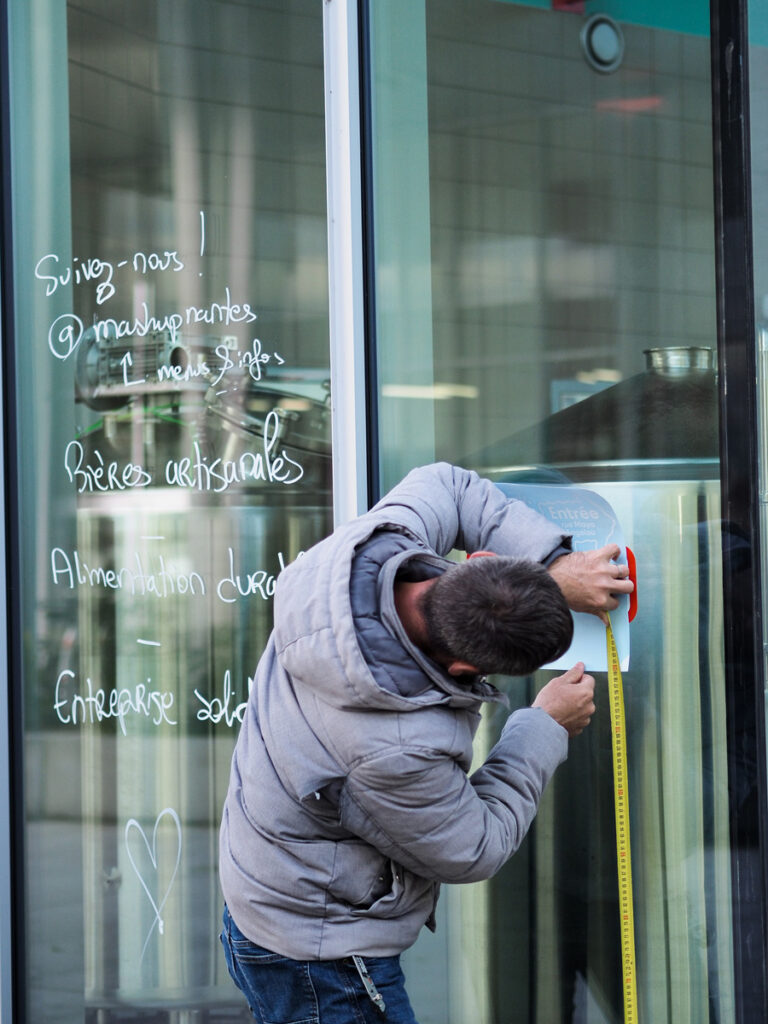 Suivez-nous !
@mashupnantes
↳ menus & infos
Bières artisanales
-
Alimentation dura
-
Entreprise solid
Entrée
rue Maya
Angelou